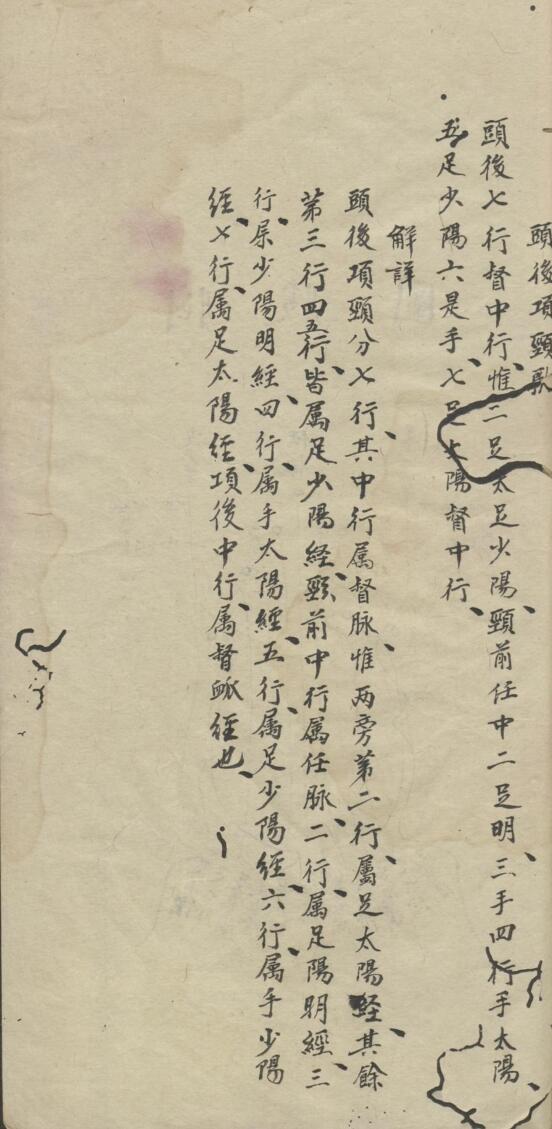 頭後項頸歌
頭後七行督中行惟二足太足少陽頸前任中二足明三手四行手太陽
五足少陽六是手七足太陽督中行
解詳
頭後項頸分七行其中行属督脉惟两旁第二行属足太陽経其餘
第三行四五行皆属足少陽経頸前中行属任脉二行属足陽明經三
行屎少陽明經四行属手太陽經五行属足少陽經六行属手少陽
經七行属足太陽經項後中行属督脈經也